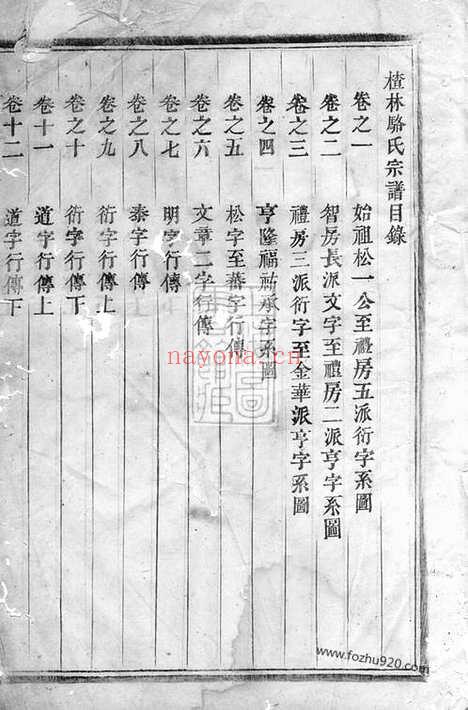 楂林駱氏宗譜目錄
卷之一 始祖松一公至禮房五派衍字系圖
卷之二 智房長派文字至禮房二派亨字系圖
卷之三 禮房三派衍字至金華派亨字系圖
卷之四 亨隆福祐承字系圖
卷之五 松字至蕃字行傳
卷之六 文章二字行傳
卷之七 明字行傳
卷之八 泰字行傳
卷之九 衍字行傳上
卷之十 衍字行傳下
卷十一 道字行傳上
卷十二 道字行傳下
nayona.cn
www.fozhu920.com